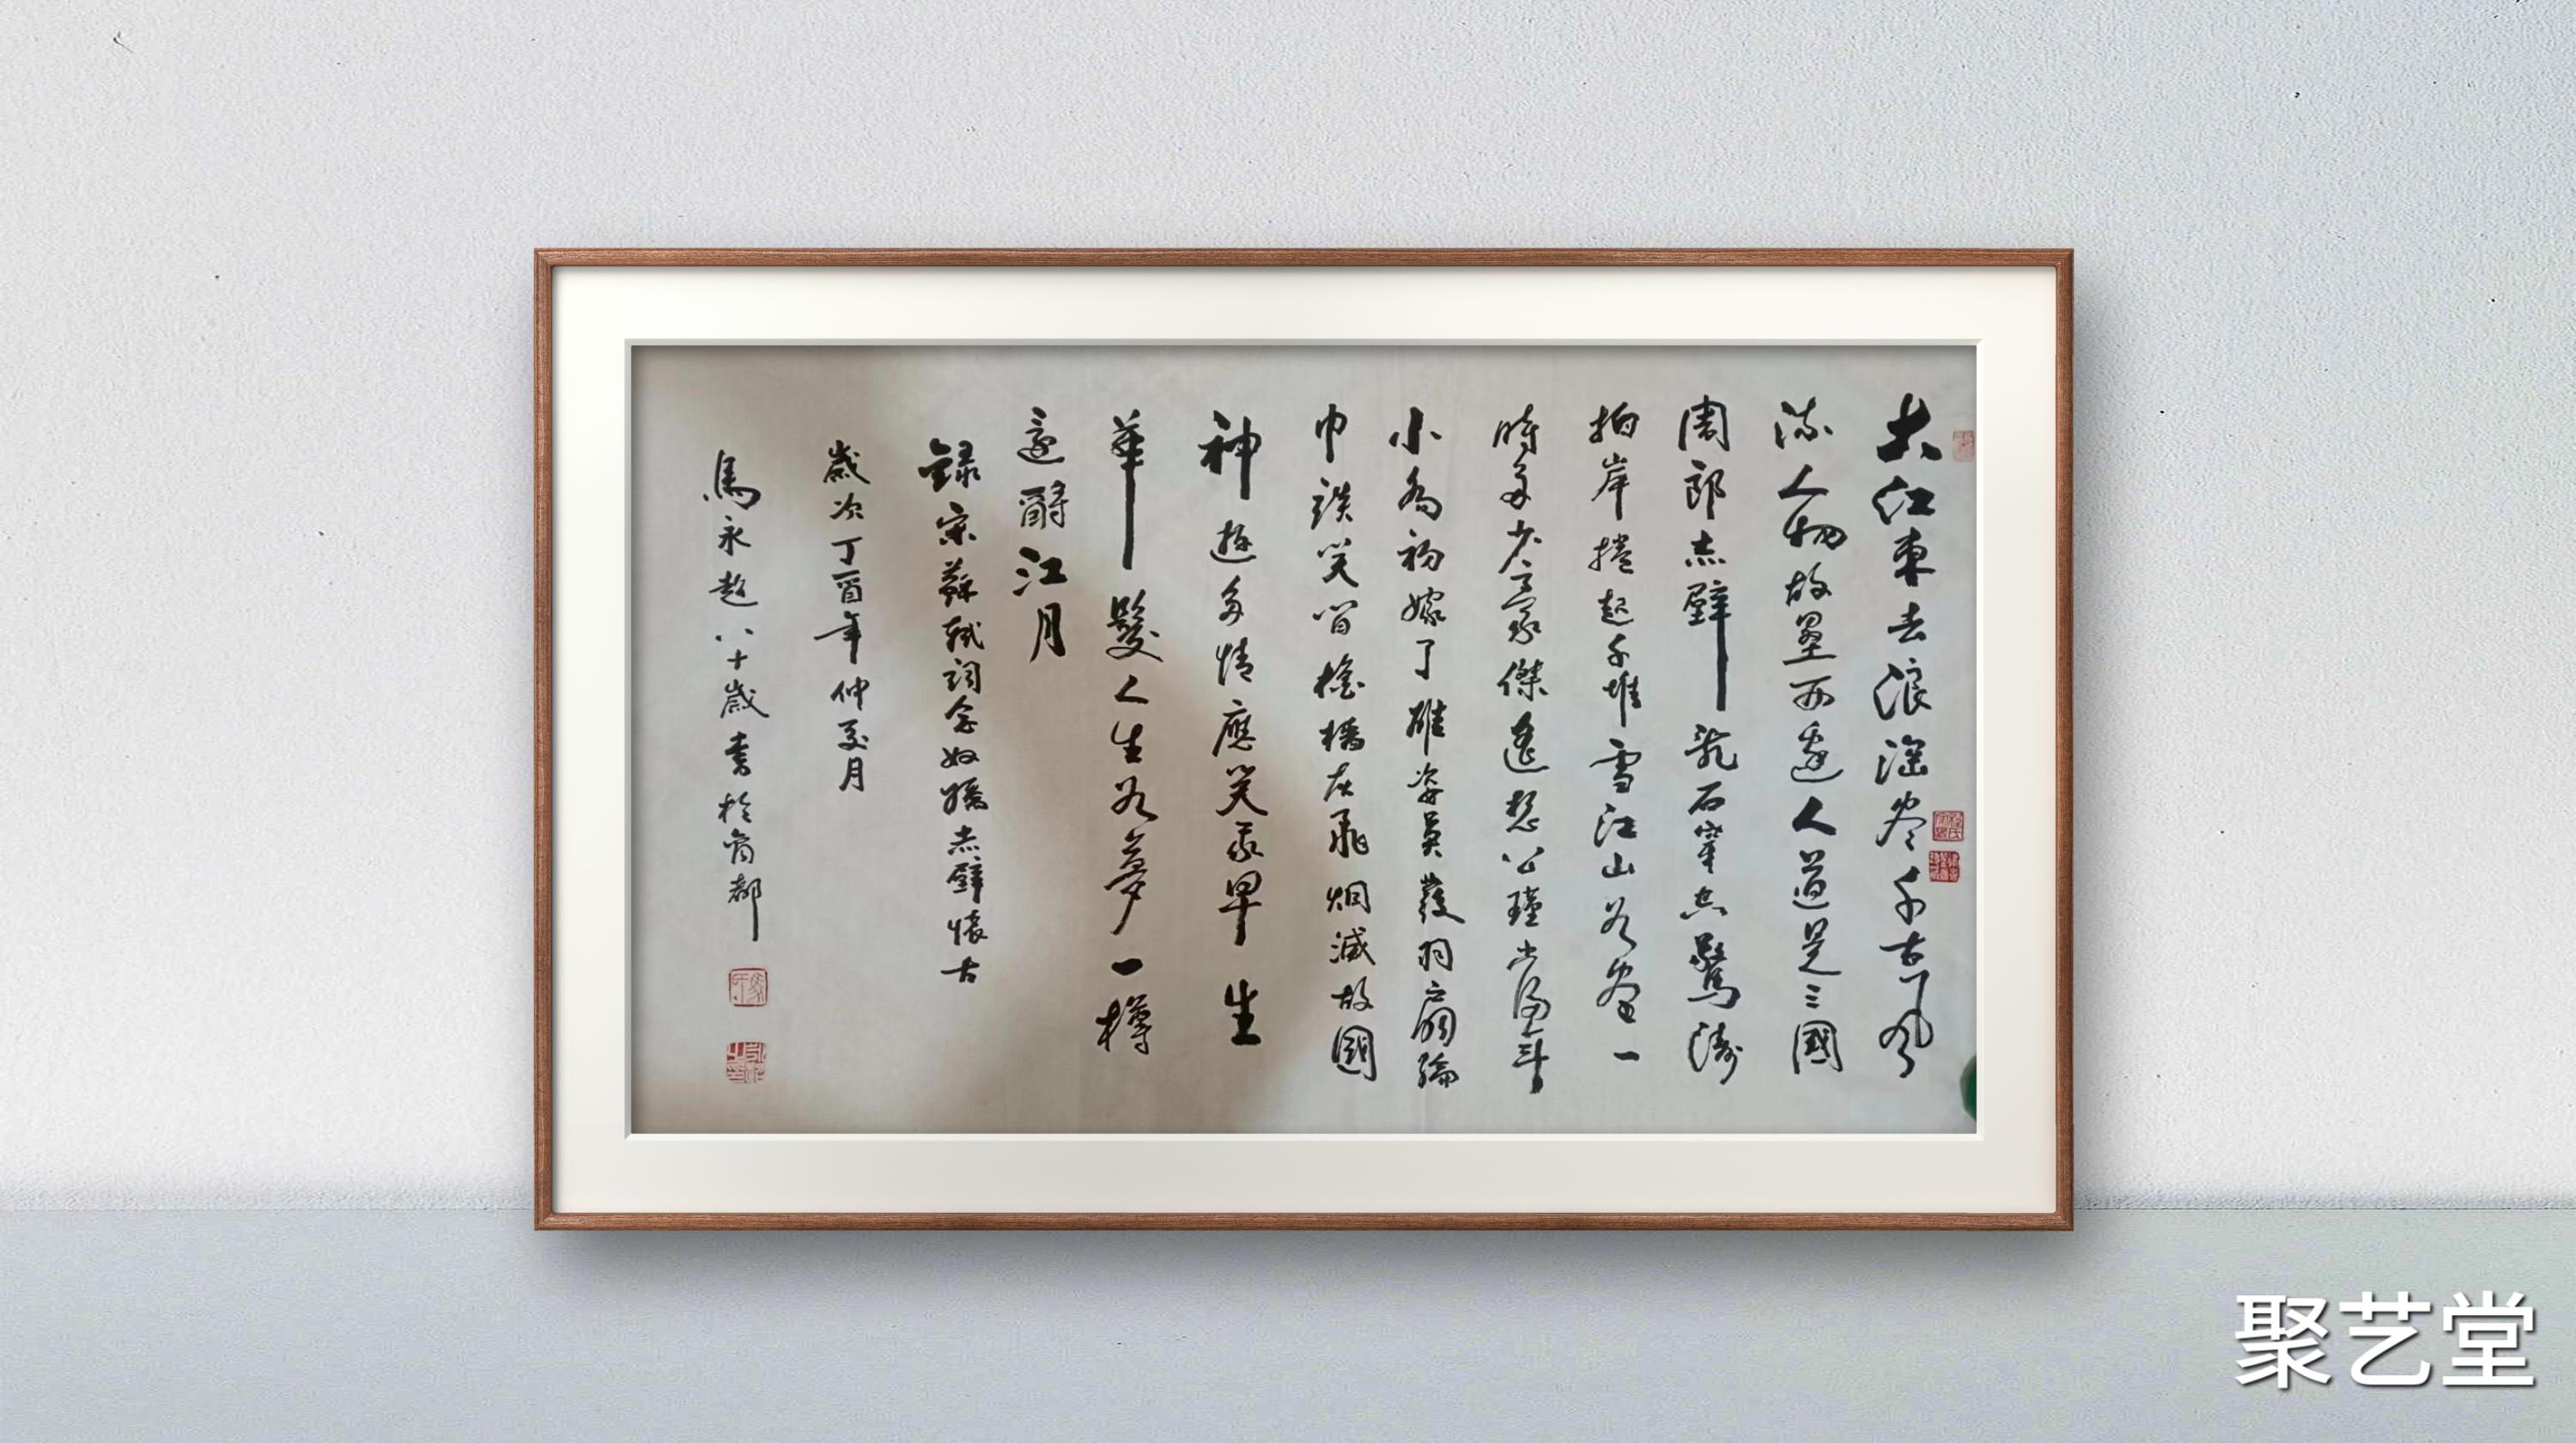 大江東去浪淘盡千古風
流人物故壘西邊人道是三國
周郎赤壁亂石穿空驚濤
拍岸捲起千堆雪江山如畫一
時多少豪傑遙想公瑾當年
小喬初嫁了雄姿英發羽扇綸
巾談笑間檣櫓灰飛烟滅故國
神遊多情應笑我早生
華髮人生如夢一樽
還酹江月
錄宋蘇軾詞念奴嬌赤壁懷古
歲次丁酉年仲夏月
馬永超八十歲書於商都
聚艺堂